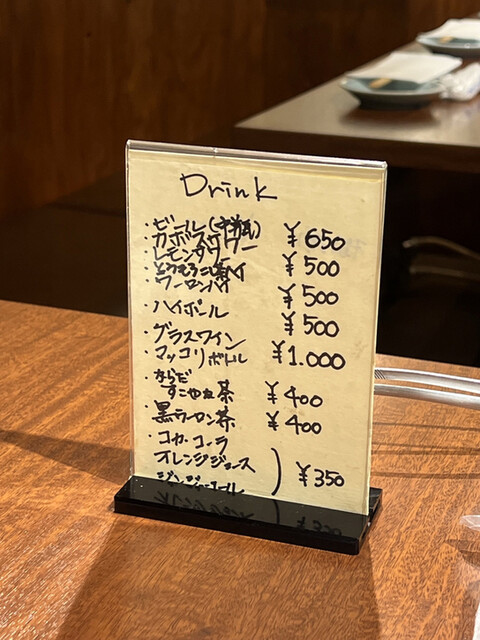 Drink
・ビール(中瓶) ¥650
・カボスサワー
レモンサワー ¥500
・とうもろこし茶ハイ
・ウーロンハイ ¥500
・ハイボール ¥500
・グラスワイン
・マッコリボトル ¥1.000
・ならびすこやか茶 ¥400
・黒ウーロン茶 ¥400
・コカ・コーラ
オレンジジュース ¥350
ジンジャーエール